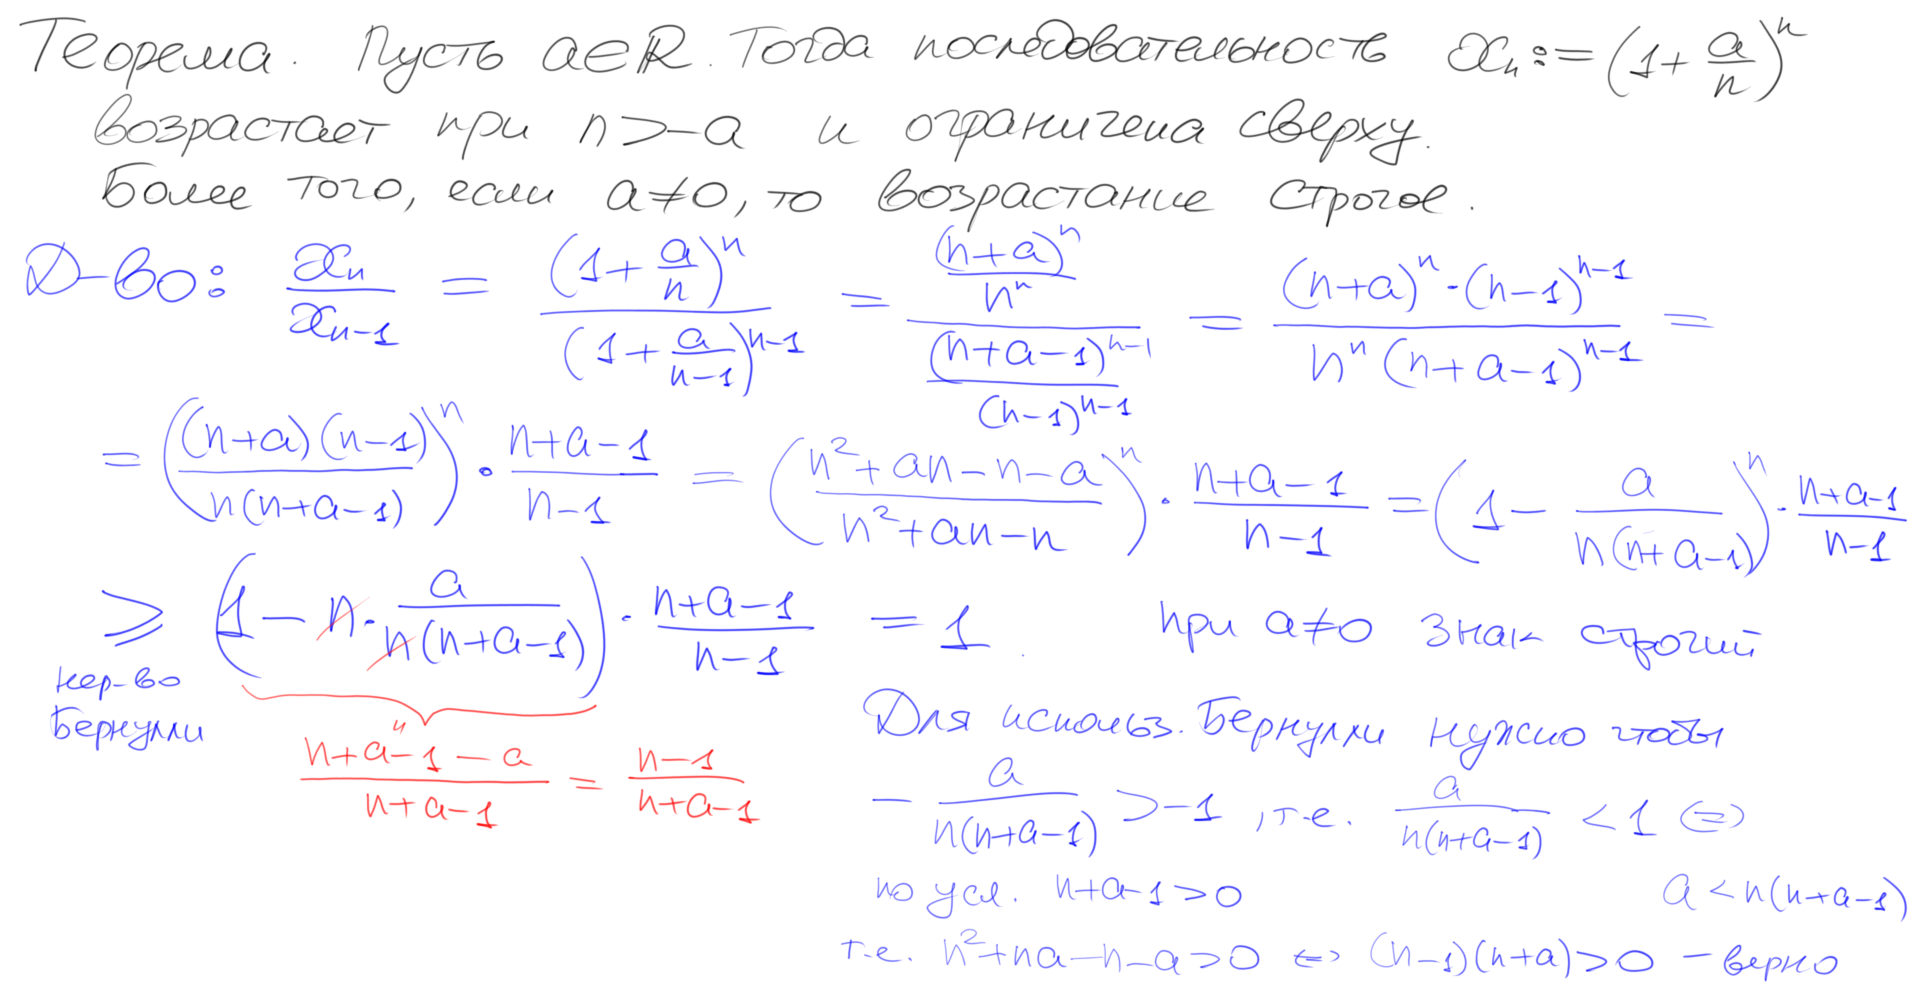 Теорема. Пусть a∈ℝ. Тогда последовательность xₙ := (1 + a/n)ⁿ
возрастает при n > -a и ограничена сверху.
Более того, если a≠0, то возрастание строгое.
Д-во: xₙ/xₙ₋₁ = (1 + a/n)ⁿ / (1 + a/(n-1))ⁿ⁻¹ = ((n+a)ⁿ/nⁿ) / ((n+a-1)ⁿ⁻¹/(n-1)ⁿ⁻¹) = ((n+a)ⁿ·(n-1)ⁿ⁻¹) / (nⁿ(n+a-1)ⁿ⁻¹) =
= ((n+a)(n-1) / (n(n+a-1)))ⁿ · (n+a-1)/(n-1) = ((n²+an-n-a)/(n²+an-n))ⁿ · (n+a-1)/(n-1) = (1 - a/(n(n+a-1)))ⁿ · (n+a-1)/(n-1)
≥ (1 - n· a/(n(n+a-1))) · (n+a-1)/(n-1) = 1. при a≠0 знак строгий
нер-во
Бернулли
(n+a-1-a)/(n+a-1) = (n-1)/(n+a-1)
Для использ. Бернулли нужно чтобы
- a/(n(n+a-1)) > -1, т.е. a/(n(n+a-1)) < 1 ⇔
по усл. n+a-1>0 a < n(n+a-1)
т.е. n²+na-n-a>0 ⇔ (n-1)(n+a)>0 - верно